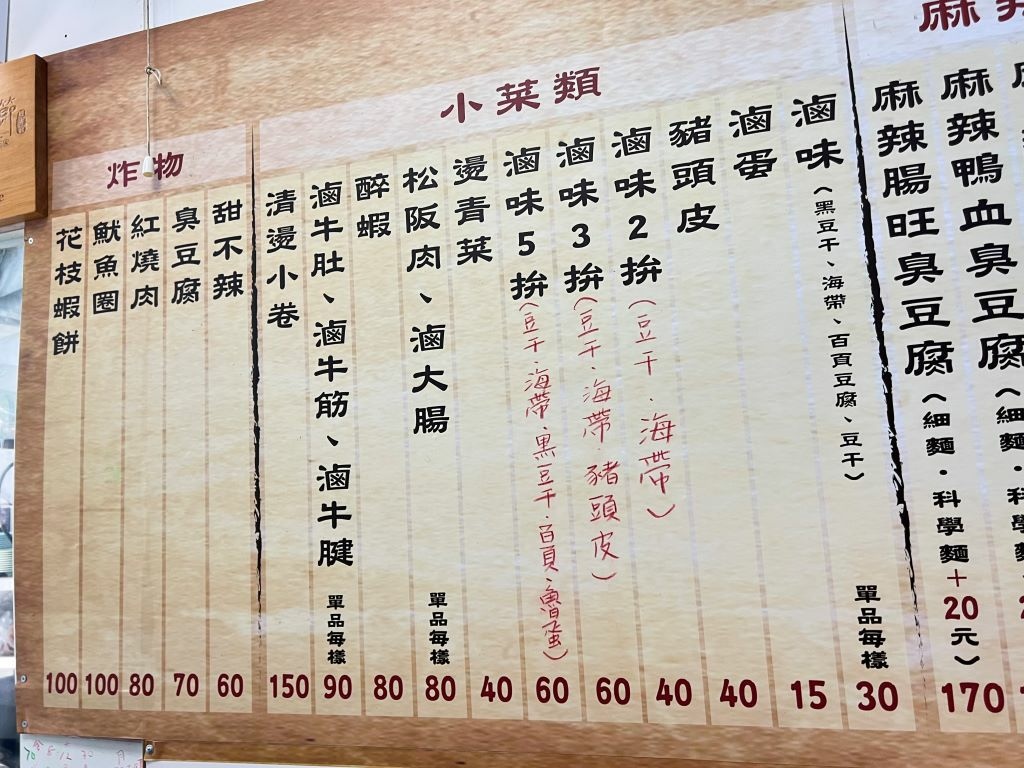 麻
麻辣鴨血臭豆腐(細麵·科學麵
麻辣腸旺臭豆腐(細麵·科學麵+20元)
170
小菜類
滷味(黑豆干、海帶、百頁豆腐、豆干)
單品每樣
30
滷蛋
15
豬頭皮
40
滷味2拚(豆干.海帶)
40
滷味3拚(豆干.海帶.豬頭皮)
60
滷味5拚(豆干.海帶.黑豆干.百頁.魯蛋)
60
燙青菜
40
松阪肉、滷大腸
單品每樣
80
醉蝦
80
滷牛肚、滷牛筋、滷牛腱
單品每樣
90
清燙小卷
150
炸物
甜不辣
60
臭豆腐
70
紅燒肉
80
魷魚圈
100
花枝蝦餅
100